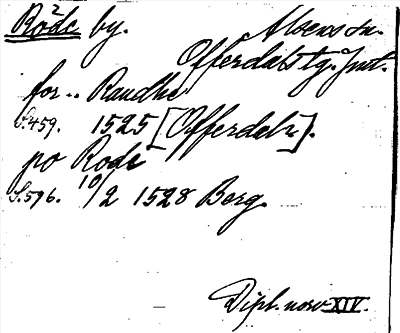 Röde by. Alsens sn.
Offerdals tg. Jmt.
for .. Raudhi
S. 459. 1525 [Offerdaln].
po Rode
S. 596. 10/2 1528 Berg.
Dipl. norv. XIV.